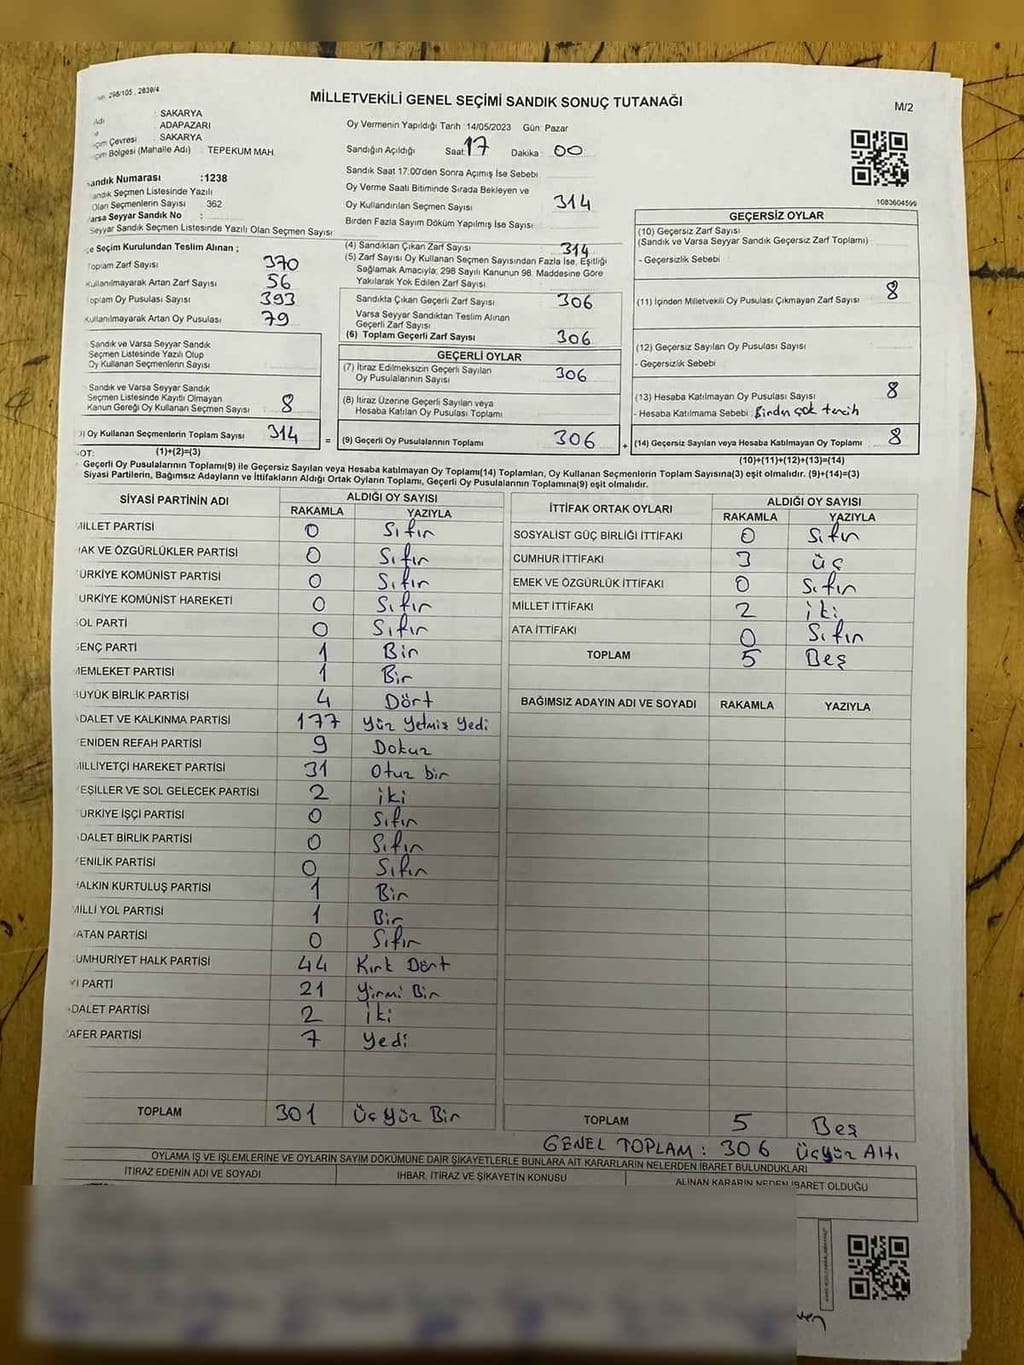 298/105, 2839/4
MİLLETVEKİLİ GENEL SEÇİMİ SANDIK SONUÇ TUTANAĞI
M/2
: SAKARYA
ADAPAZARI
çim Çevresi : SAKARYA
çim Bölgesi (Mahalle Adı) : TEPEKUM MAH.
andık Numarası :1238
andık Seçmen Listesinde Yazılı
Olan Seçmenlerin Sayısı : 362
arsa Seyyar Sandık No :
Seyyar Sandık Seçmen Listesinde Yazılı Olan Seçmen Sayısı
çe Seçim Kurulundan Teslim Alınan ;
Toplam Zarf Sayısı 370
Kullanılmayarak Artan Zarf Sayısı 56
Toplam Oy Pusulası Sayısı 393
Kullanılmayarak Artan Oy Pusulası 79
Sandık ve Varsa Seyyar Sandık
Seçmen Listesinde Yazılı Olup
Oy Kullanan Seçmenlerin Sayısı
Sandık ve Varsa Seyyar Sandık
Seçmen Listesinde Kayıtlı Olmayan
Kanun Gereği Oy Kullanan Seçmen Sayısı 8
) Oy Kullanan Seçmenlerin Toplam Sayısı 314 =
(1)+(2)=(3)
Oy Vermenin Yapıldığı Tarih :14/05/2023 Gün: Pazar
Sandığın Açıldığı Saat: 17 Dakika : 00
Sandık Saat 17.00'den Sonra Açılmış İse Sebebi
Oy Verme Saati Bitiminde Sırada Bekleyen ve
Oy Kullandırılan Seçmen Sayısı 314
Birden Fazla Sayım Döküm Yapılmış İse Sayısı
(4) Sandıktan Çıkan Zarf Sayısı 314
(5) Zarf Sayısı Oy Kullanan Seçmen Sayısından Fazla İse, Eşitliği
Sağlamak Amacıyla; 298 Sayılı Kanunun 98. Maddesine Göre
Yakılarak Yok Edilen Zarf Sayısı
Sandıkta Çıkan Geçerli Zarf Sayısı 306
Varsa Seyyar Sandıktan Teslim Alınan
Geçerli Zarf Sayısı
(6) Toplam Geçerli Zarf Sayısı 306
GEÇERLİ OYLAR
(7) İtiraz Edilmeksizin Geçerli Sayılan
Oy Pusulalarının Sayısı 306
(8) İtiraz Üzerine Geçerli Sayılan veya
Hesaba Katılan Oy Pusulası Toplamı
(9) Geçerli Oy Pusulalarının Toplamı 306 +
1083604599
GEÇERSİZ OYLAR
(10) Geçersiz Zarf Sayısı
(Sandık ve Varsa Seyyar Sandık Geçersiz Zarf Toplamı)
- Geçersizlik Sebebi
(11) İçinden Milletvekili Oy Pusulası Çıkmayan Zarf Sayısı 8
(12) Geçersiz Sayılan Oy Pusulası Sayısı
- Geçersizlik Sebebi
(13) Hesaba Katılmayan Oy Pusulası Sayısı 8
- Hesaba Katılmama Sebebi : Birden çok tercih
(14) Geçersiz Sayılan veya Hesaba Katılmayan Oy Toplamı 8
(10)+(11)+(12)+(13)=(14)
OT:
Geçerli Oy Pusulalarının Toplamı(9) ile Geçersiz Sayılan veya Hesaba katılmayan Oy Toplamı(14) Toplamları, Oy Kullanan Seçmenlerin Toplam Sayısına(3) eşit olmalıdır. (9)+(14)=(3)
Siyasi Partilerin, Bağımsız Adayların ve İttifakların Aldığı Ortak Oyların Toplamı, Geçerli Oy Pusulalarının Toplamına(9) eşit olmalıdır.
SİYASİ PARTİNİN ADI ALDIĞI OY SAYISI
RAKAMLA YAZIYLA
MİLLET PARTİSİ 0 Sıfır
AK VE ÖZGÜRLÜKLER PARTİSİ 0 Sıfır
ÜRKİYE KOMÜNİST PARTİSİ 0 Sıfır
ÜRKİYE KOMÜNİST HAREKETİ 0 Sıfır
OL PARTİ 0 Sıfır
GENÇ PARTİ 1 Bir
MEMLEKET PARTİSİ 1 Bir
BÜYÜK BİRLİK PARTİSİ 4 Dört
ADALET VE KALKINMA PARTİSİ 177 Yüz Yetmiş Yedi
YENİDEN REFAH PARTİSİ 9 Dokuz
MİLLİYETÇİ HAREKET PARTİSİ 31 Otuz bir
YEŞİLLER VE SOL GELECEK PARTİSİ 2 iki
ÜRKİYE İŞÇİ PARTİSİ 0 Sıfır
ADALET BİRLİK PARTİSİ 0 Sıfır
YENİLİK PARTİSİ 0 Sıfır
HALKIN KURTULUŞ PARTİSİ 1 Bir
MİLLİ YOL PARTİSİ 1 Bir
VATAN PARTİSİ 0 Sıfır
UMHURİYET HALK PARTİSİ 44 Kırk Dört
Yİ PARTİ 21 Yirmi Bir
ADALET PARTİSİ 2 İki
ZAFER PARTİSİ 7 Yedi
TOPLAM 301 Üç Yüz Bir
İTTİFAK ORTAK OYLARI ALDIĞI OY SAYISI
RAKAMLA YAZIYLA
SOSYALİST GÜÇ BİRLİĞİ İTTİFAKI 0 Sıfır
CUMHUR İTTİFAKI 3 üç
EMEK VE ÖZGÜRLÜK İTTİFAKI 0 Sıfır
MİLLET İTTİFAKI 2 iki
ATA İTTİFAKI 0 Sıfır
TOPLAM 5 Beş
BAĞIMSIZ ADAYIN ADI VE SOYADI RAKAMLA YAZIYLA
TOPLAM 5 Beş
GENEL TOPLAM : 306 Üçyüz Altı
OYLAMA İŞ VE İŞLEMLERİNE VE OYLARIN SAYIM DÖKÜMÜNE DAİR ŞİKAYETLERLE BUNLARA AİT KARARLARIN NELERDEN İBARET BULUNDUKLARI
İTİRAZ EDENİN ADI VE SOYADI İHBAR, İTİRAZ VE ŞİKAYETİN KONUSU ALINAN KARARIN NEDEN İBARET OLDUĞU